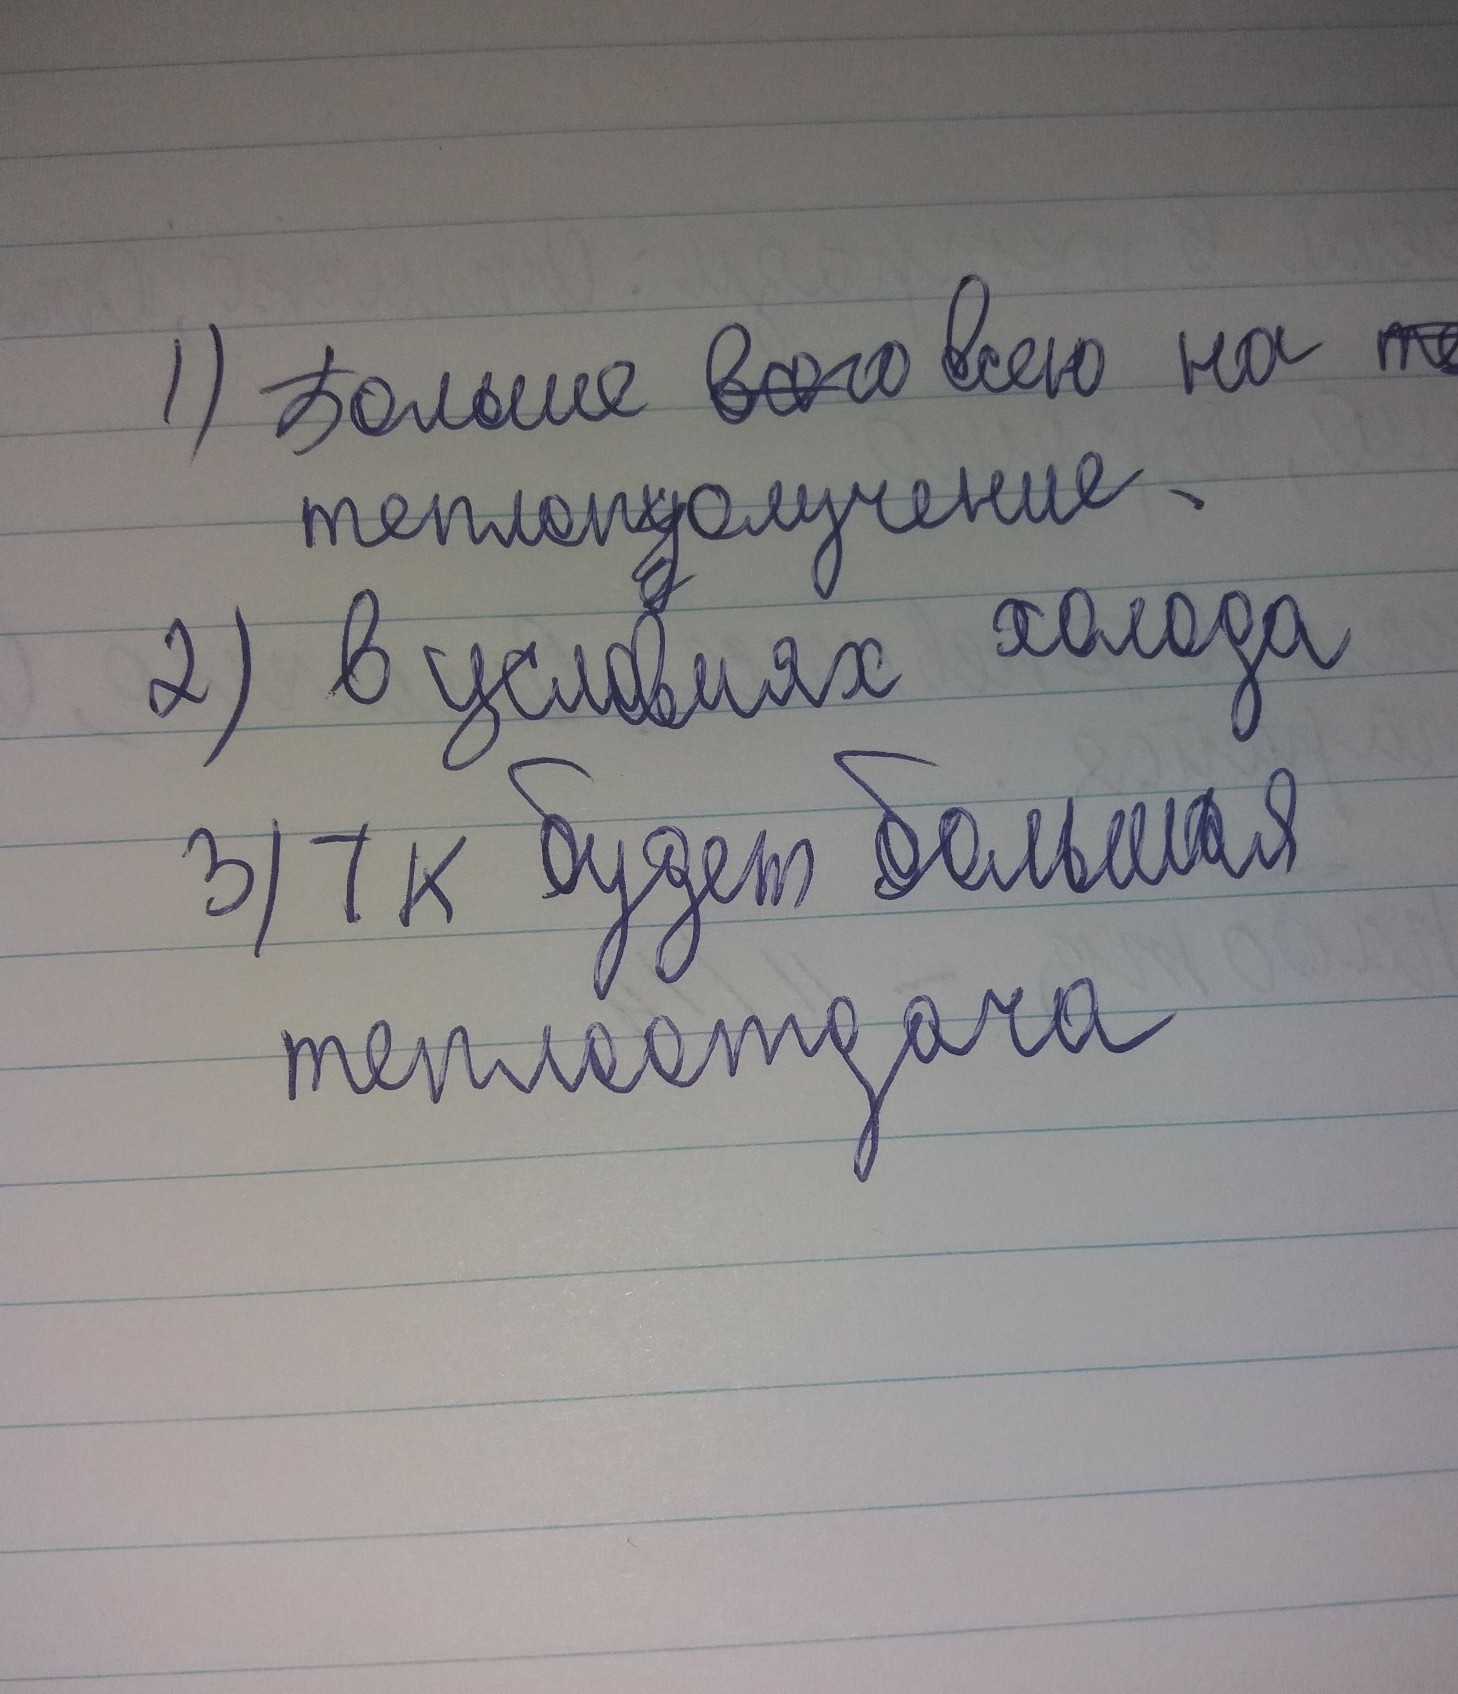 1) Больше всего на
теплополучение.
2) В условиях холода
3) Т К будет большая
теплоотдача